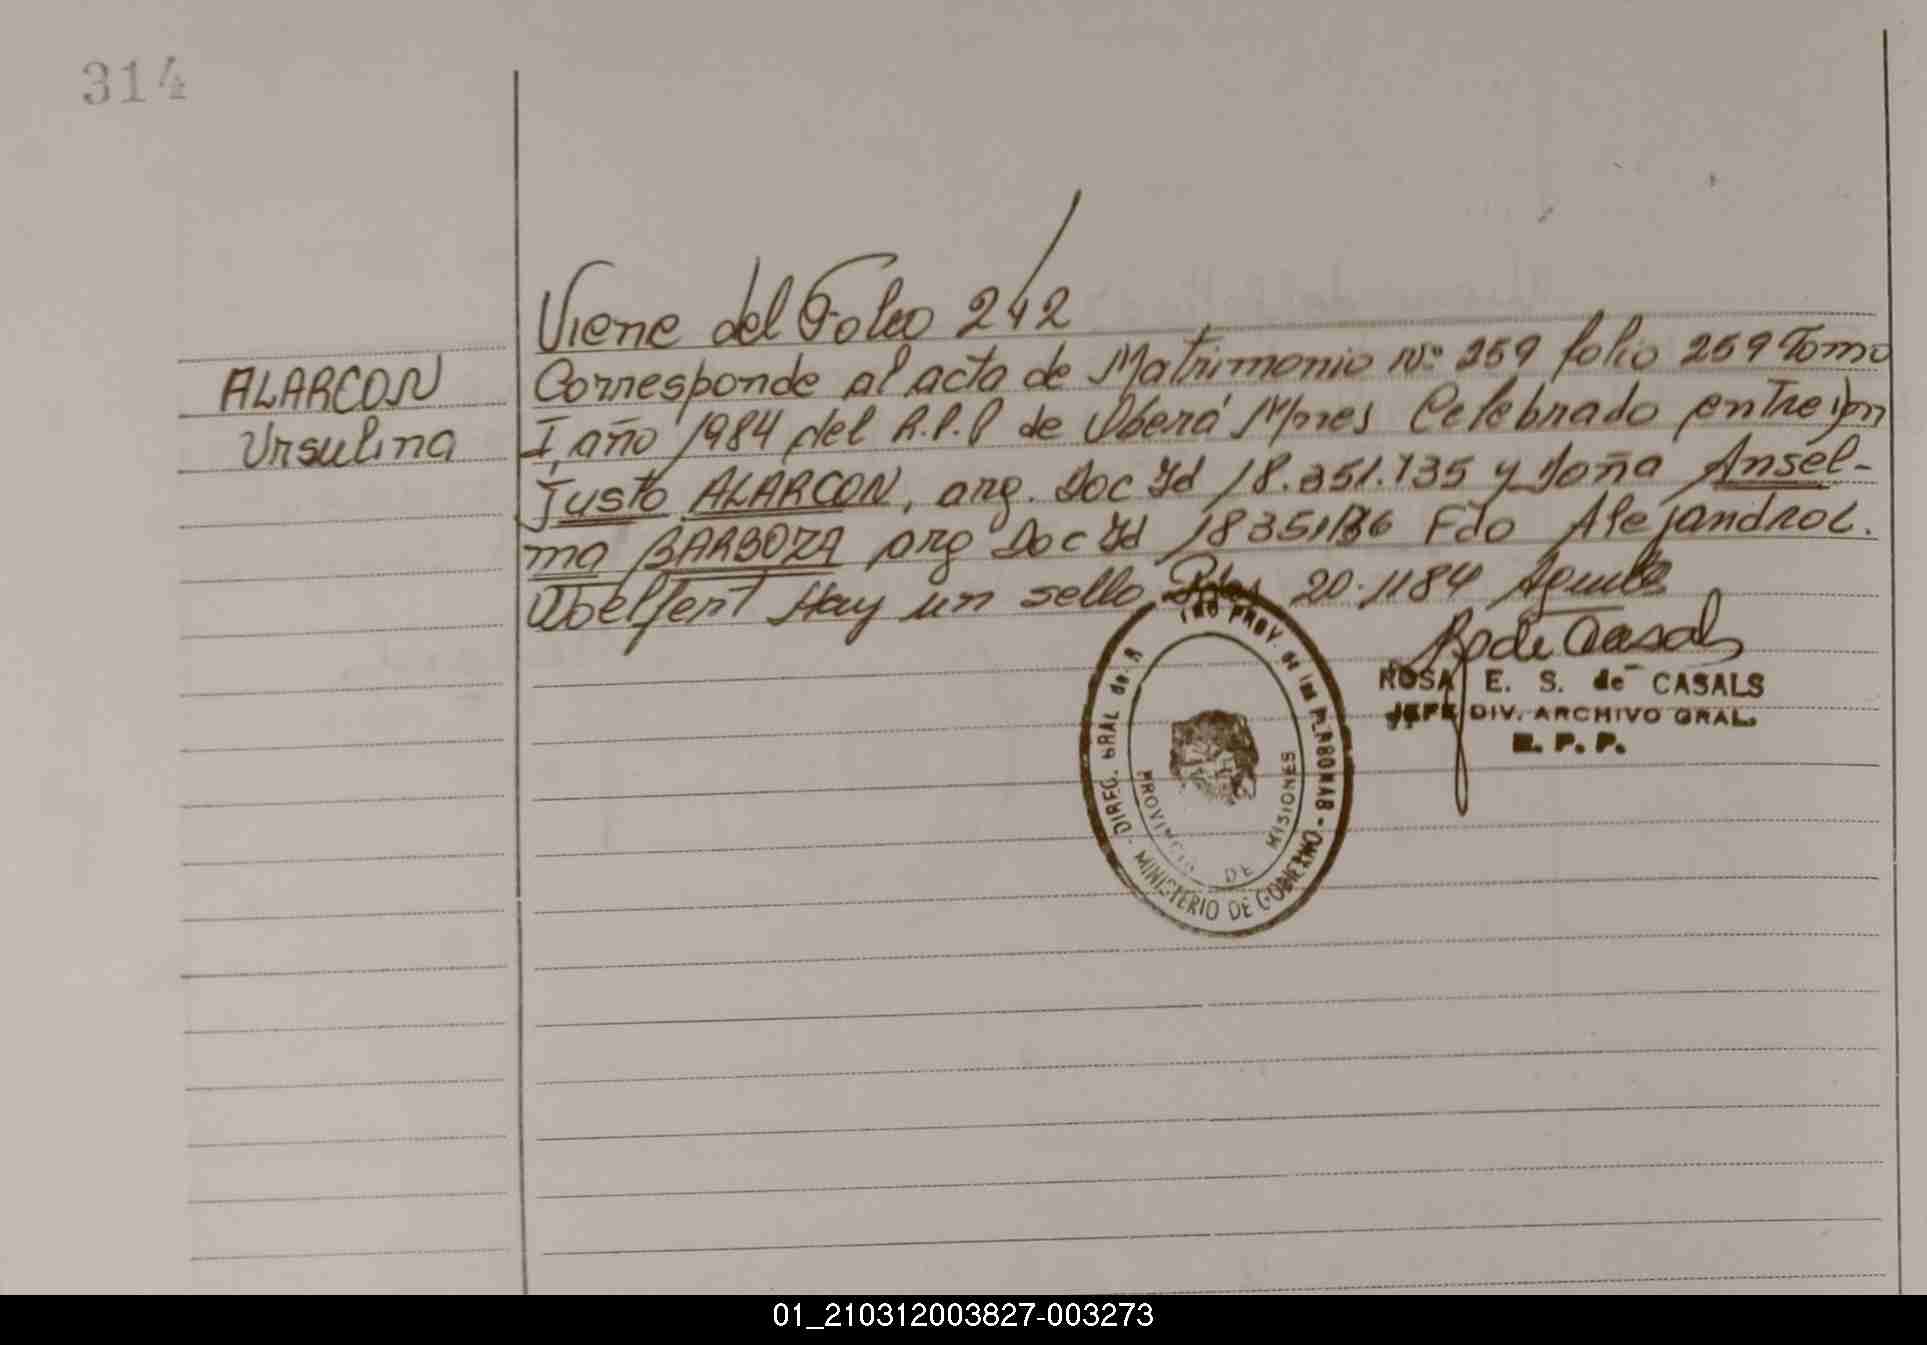 314
Viene del Folio 242
ALARCON
Ursulina
Corresponde al acta de Matrimonio Nº 259 folio 259 Tomo
I, año 1984 del R.P.P de Oberá Mnes Celebrado entre Dn
Justo ALARCON, arg. Doc Id 18.351.135 y doña Ansel-
ma BARBOZA arg Doc Id 18351136 Fdo Alejandro C.
Hay un sello Pdas 20.1184
ROSA E. S. de CASALS
JEFE DIV. ARCHIVO GRAL.
R. P. P.
DIREC. GRAL de R PROV. de las PERSONAS - MINISTERIO DE GOBIERNO
PROVINCIA DE MISIONES
01_210312003827-003273